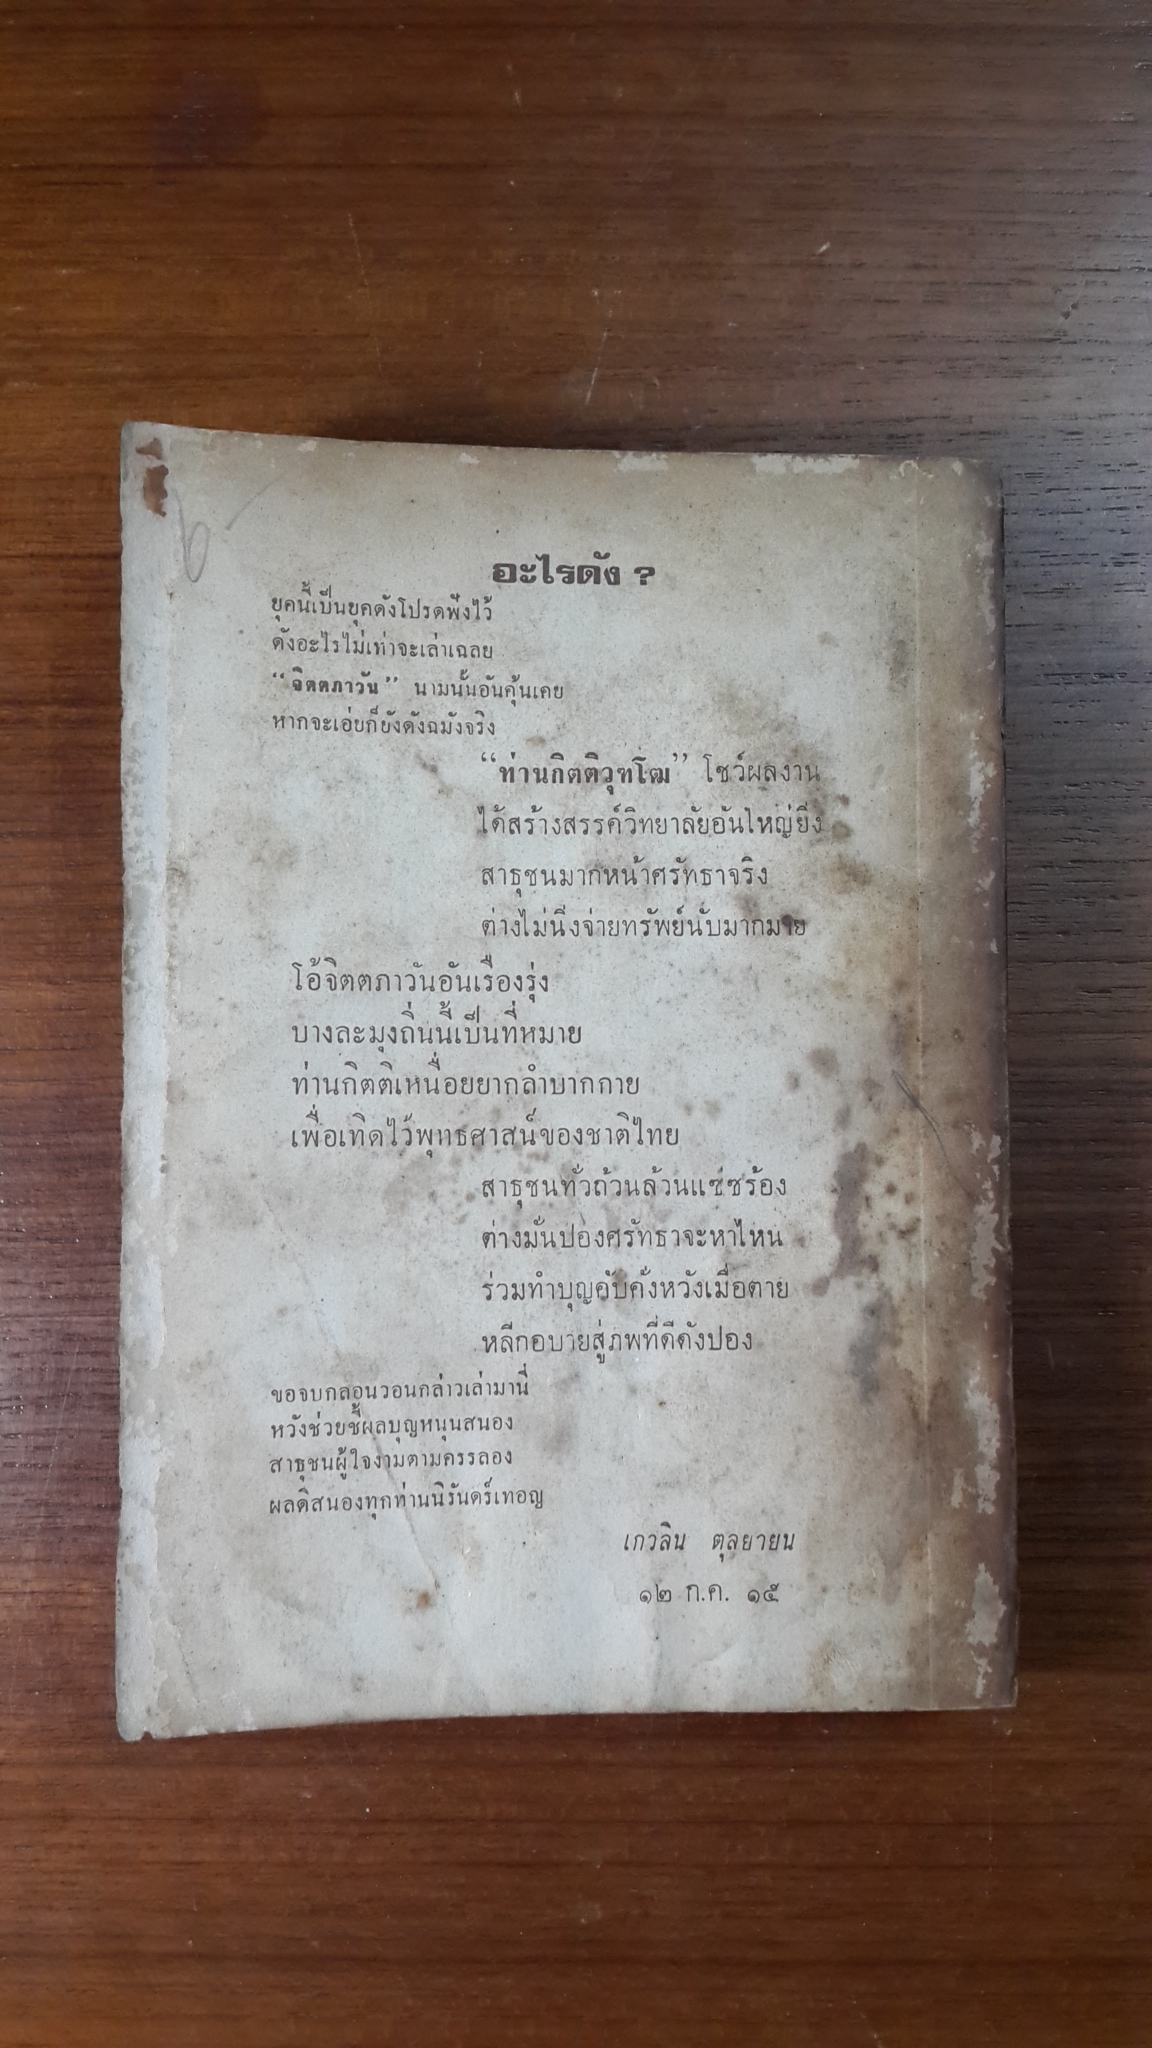 6-
อะไรดัง ?
ยุคนี้เป็นยุคดังโปรดฟังไว้
ดังอะไรไม่เท่าจะเล่าเฉลย
“จิตตภาวัน” นามนั้นอันคุ้นเคย
หากจะเอ่ยก็ยังดังฉมังจริง
“ท่านกิตติวุฑโฒ” โชว์ผลงาน
ได้สร้างสรรค์วิทยาลัยอันใหญ่ยิ่ง
สาธุชนมากหน้าศรัทธาจริง
ต่างไม่นิ่งจ่ายทรัพย์นับมากมาย
โอ้จิตตภาวันอันเรืองรุ่ง
บางละมุงถิ่นนี้เป็นที่หมาย
ท่านกิตติเหนื่อยยากลำบากกาย
เพื่อเทิดไว้พุทธศาสน์ของชาติไทย
สาธุชนทั่วถ้วนล้วนแซ่ซร้อง
ต่างมั่นปองศรัทธาจะหาไหน
ร่วมทำบุญคับคั่งหวังเมื่อตาย
หลีกอบายสู่ภพที่ดีดังปอง
ขอจบกลอนวอนกล่าวเล่ามานี่
หวังช่วยชี้ผลบุญหนุนสนอง
สาธุชนผู้ใจงามตามครรลอง
ผลดีสนองทุกท่านนิรันดร์เทอญ
เกวลิน ตุลยายน
๑๒ ก.ค. ๑๕